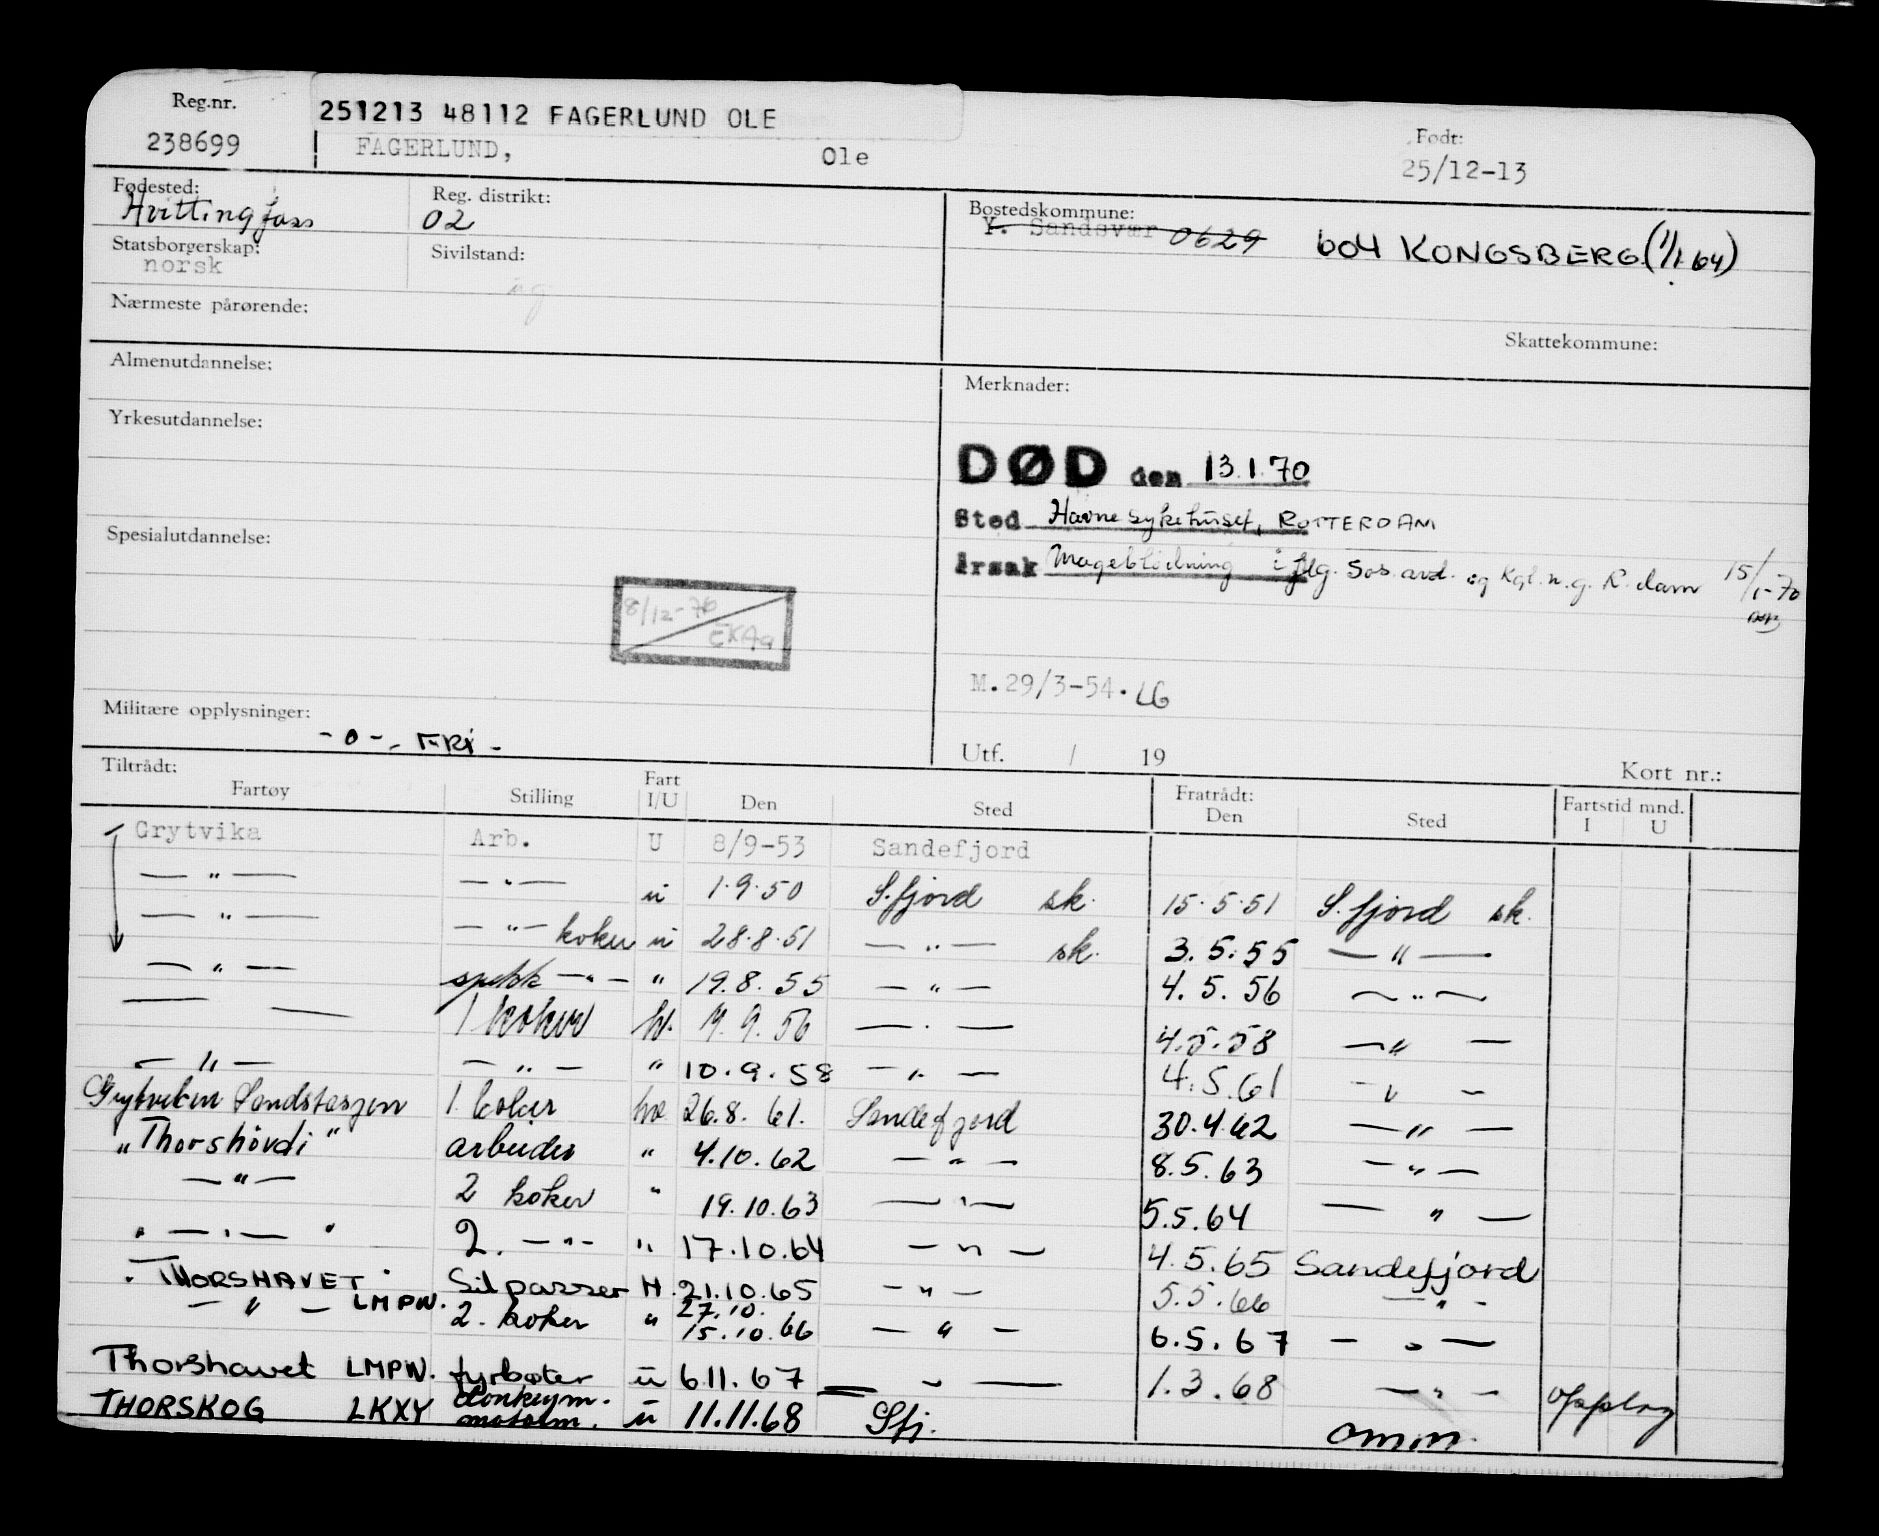 Reg.nr. 251213 48112 FAGERLUND OLE Født:
238699 FAGERLUND, Ole 25/12-13
Fødested: Reg. distrikt: Bostedskommune:
Hvittingfoss 02 Y. Sandsvær 0629 604 KONGSBERG (1/1.64)
Statsborgerskap: Sivilstand:
norsk ug
Nærmeste pårørende: Skattekommune:
Almenutdannelse: Merknader:
Yrkesutdannelse:
DØD den 13.1.70
Sted Havnesykehuset, ROTTERDAM
Spesialutdannelse:
Årsak Mageblødning i flg. Sos. avd. og Kgl. n. g. R.dam 15/1-70
8/12-76 EKAa
M.29/3-54. LG
Militære opplysninger:
-0-, FRI -
Utf. / 19 Kort nr.:
Tiltrådt: Fart Fratrådt: Fartstid mnd.
Fartøy Stilling I/U Den Sted Den Sted I U
Grytvika Arb. U 8/9-53 Sandefjord
— " — — " — u 1.9.50 S.fjord sk. 15.5.51 S.fjord sk.
— " — — " — koker u 28.8.51 — " — sk. 3.5.55 — " —
— " — spekk — " — " 19.8.55 — " — 4.5.56 — " —
— — 1 koker hv. 9.56 — " — 4.5.58 — " —
— " — — " — " 10.9.58 — " — 4.5.61 — " —
Grytviken Landstasjon 1. koker hv 26.8.61. Sandefjord 30.4.62 — " —
"Thorshövdi" arbeider " 4.10.62 — " — 8.5.63 — " —
— " — 2 koker " 19.10.63 — " — 5.5.64 — " —
" — " — " 2. — " — " 17.10.64 — " — 4.5.65 Sandefjord
"THORSHAVET" Silpasser H. 21.10.65 — " — 5.5.66 — " —
— " — LMPN. 2. koker " 27.10. 15.10.66 — " — 6.5.67 — " —
Thorshavet LMPN. fyrbøter u 6.11.67 — " — 1.3.68 — " — opplag
THORSKOG LKXY donkeym. motorm. u 11.11.68 Sfj. omm.